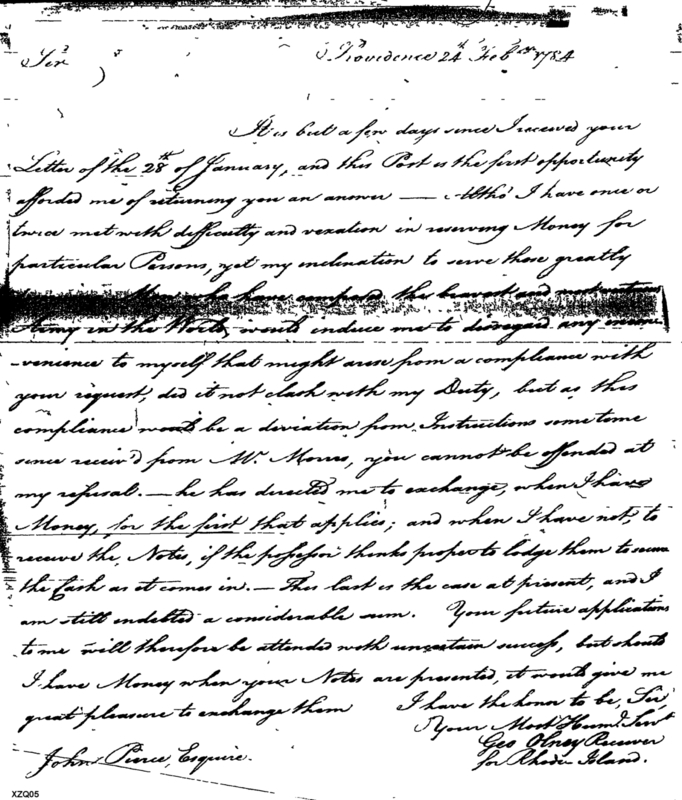 Sir
Providence 24th Feby 1784
It is but a few days since I received your
Letter of the 28th of January, and this Post is the first opportunity
afforded me of returning you an answer — Altho' I have once or
twice met with difficulty and vexation in reserving Money for
particular Persons, yet my inclination to serve those greatly
Men who have composed the bravest and most
Army in the World, would induce me to disregard any incon-
-venience to myself that might arise from a compliance with
your request, did it not clash with my Duty, but as this
compliance would be a deviation from Instructions some time
since receiv'd from Mr. Morris, you cannot be offended at
my refusal. — he has directed me to exchange, when I have
Money, for the first that applies; and when I have not, to
receive the Notes, if the possessor thinks proper to lodge them to secure
the Cash as it comes in. — This last is the case at present, and I
am still indebted a considerable sum. Your future applications
to me will therefore be attended with uncertain success, but should
I have Money when your Notes are presented, it would give me
great pleasure to exchange them I have the honor to be, Sir,
Your Most Huml. Servt
Geo Olney Receiver
for Rhode Island.
John Pierce, Esquire.
XZQ05